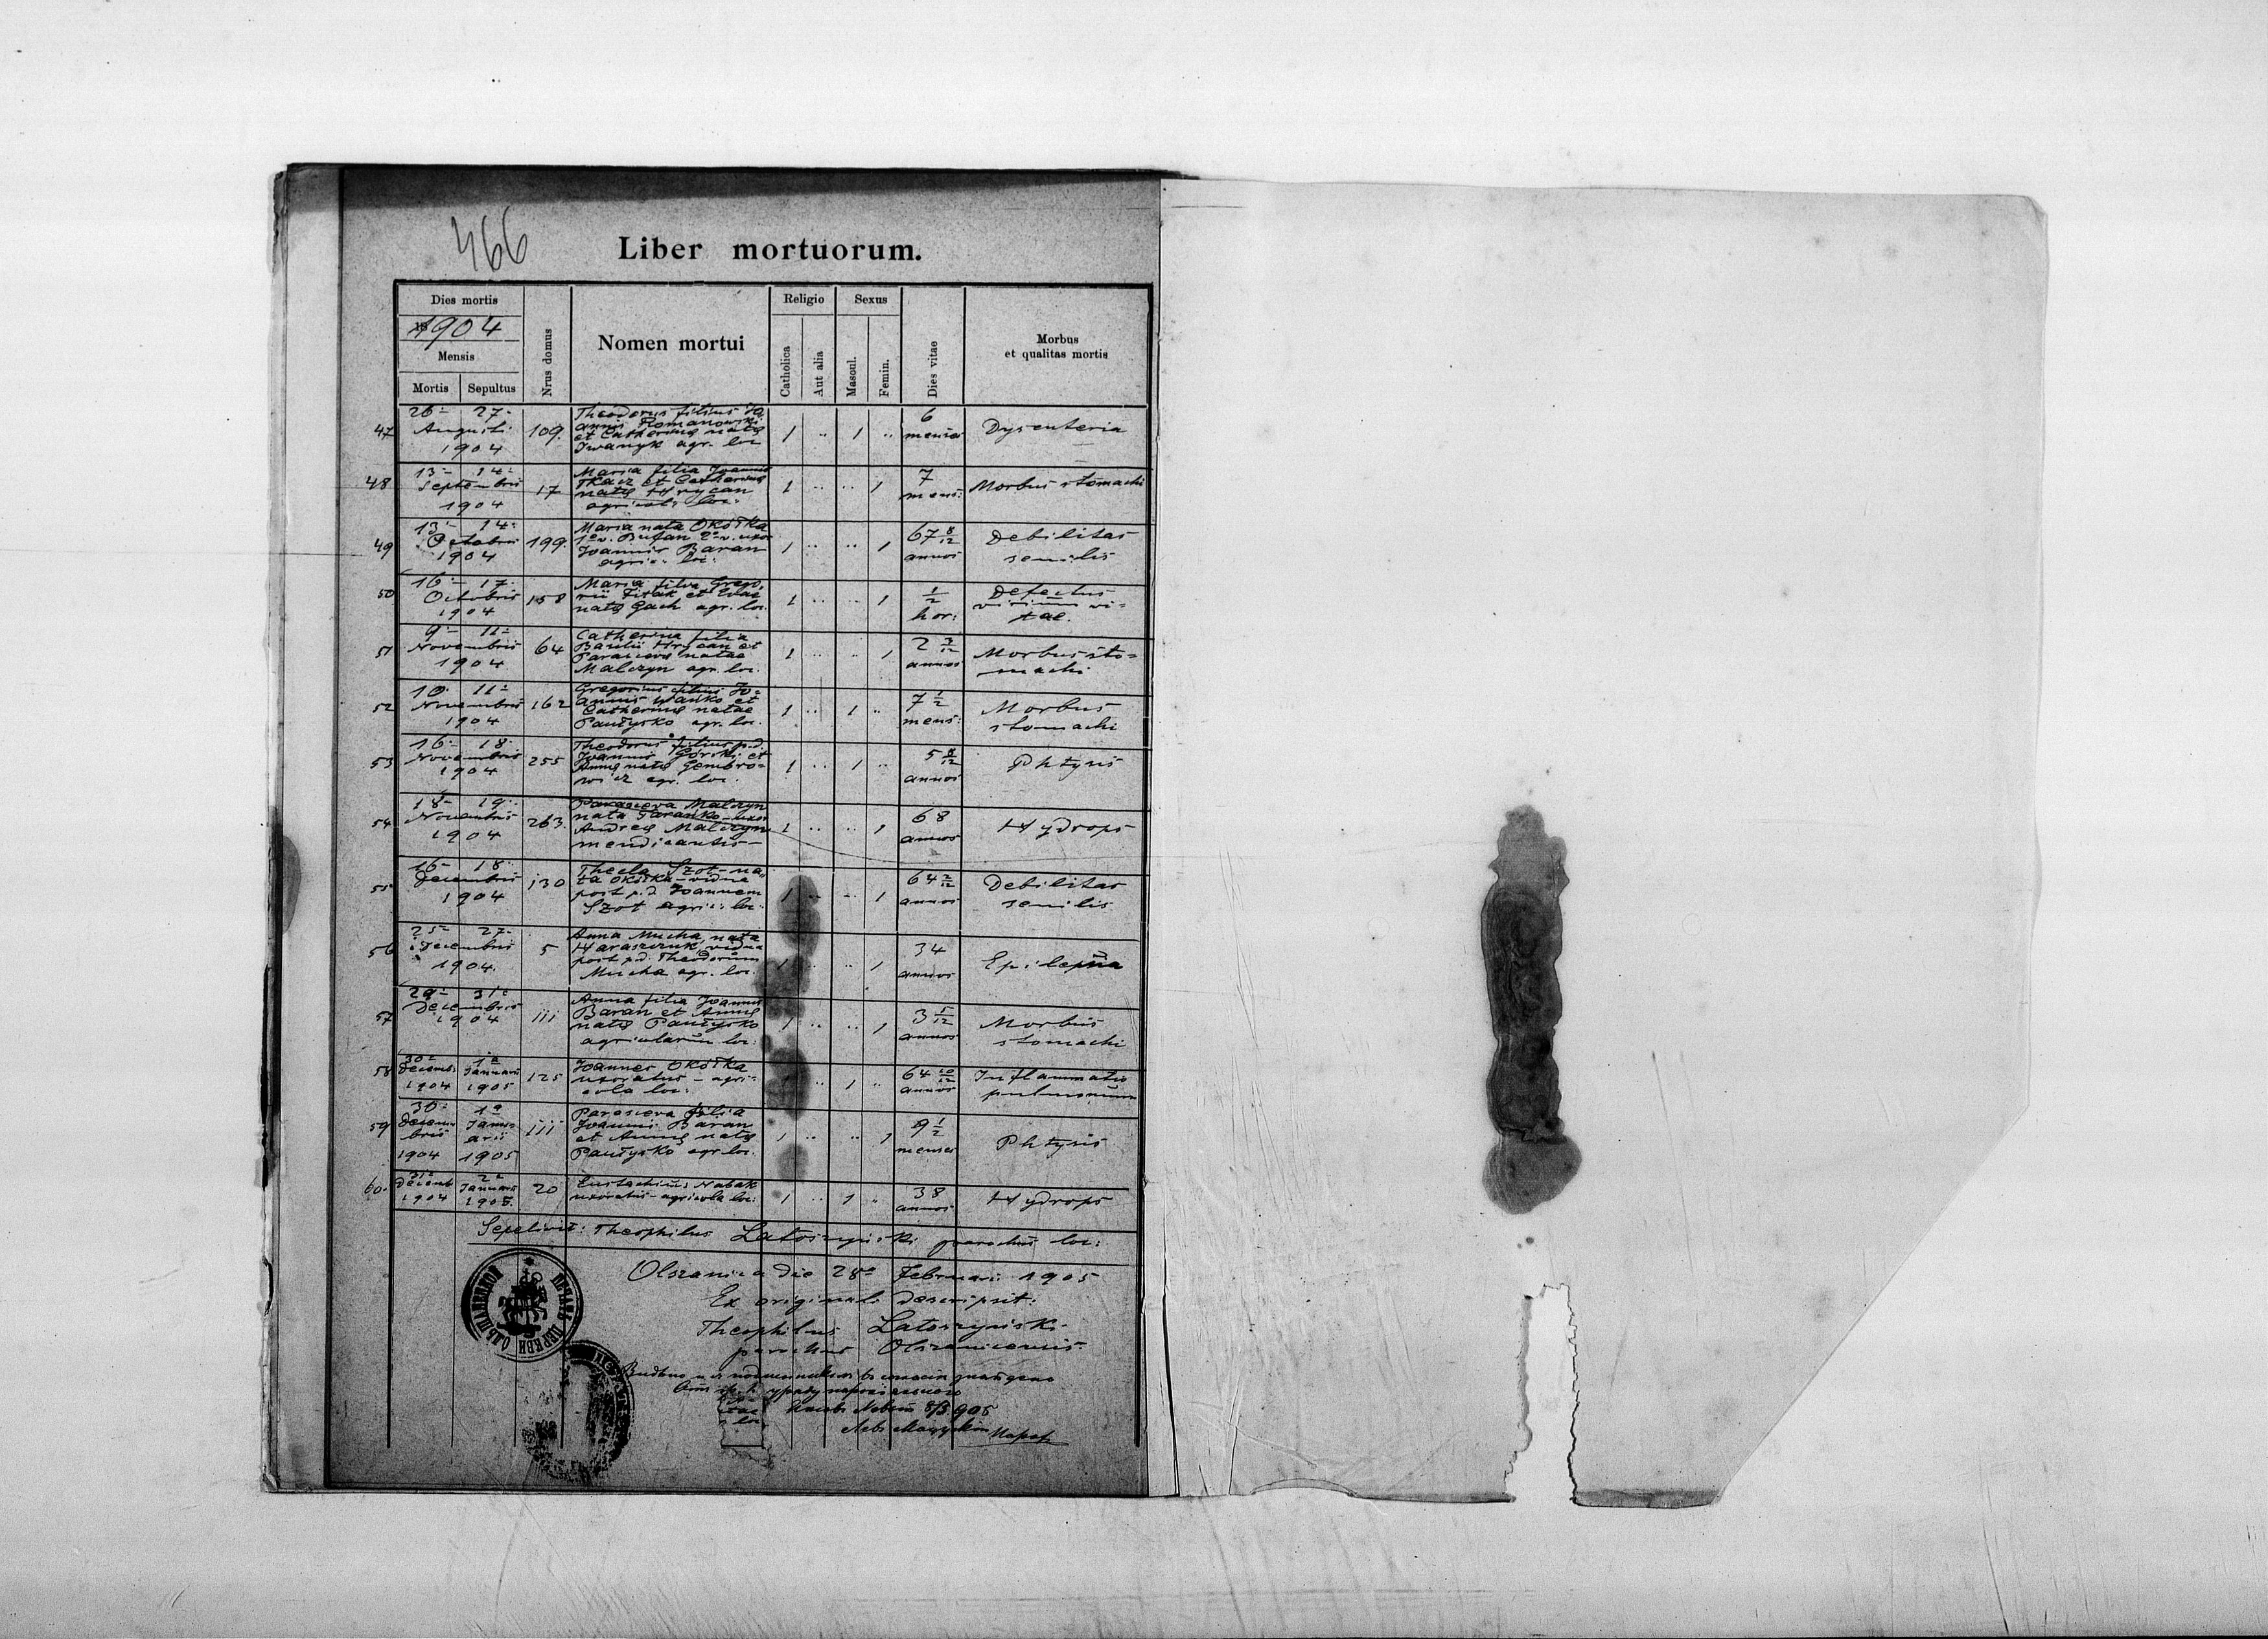 466
Liber mortuorum.
Dies mortis
1904
Mensis
Mortis Sepultus
Nrus domus
Nomen mortui
Religio
Catholica
Aut alia
Sexus
Mascul.
Femin.
Dies vitae
Morbus
et qualitas mortis
47 26 27 Augusti 1904 109. Theodorus filius Jo
annis Romanowski
et Catherinę natę
Iwanyk agr. loc 1 .. 1 .. 6 menses Dysenteria
48 13 14 Septembris 1904 17 Maria filia Joannis
Tkacz et Catherinę
natę Hrycan
agricol. loc: 1 .. .. 1 7 mens: Morbus stomachi
49 13 14 Octobris 1904 199. Maria nata Okółka
1o v. Bufan 2o v. uxor
Joannis Baran
agric: loc: 1 .. .. 1 67 8/12 annos Debilitas
senilis
50 16 17 Octobris 1904 158 Maria filia Grego
rii Fitak et Evae
natę Gach agr. loc. 1 .. .. 1 1/2 hor: Defectus
virium vi=
tae.
51 9 11 Novembris 1904 64 Catherina filia
Basilii Hrycan et
Parascevę natae
Malczyn agr. loc. 1 .. .. 1 2 annos Morbus sto=
machi
52 10 11 Novembris 1904 162 Gregorius filius Jo=
annis et
Catherinę natae
Pautysko agr. loc. 1 .. 1 .. 7 1/2 mens: Morbus
stomachi
53 16 18 Novembris 1904 255 Theodorus filius p.d.
Joannis Górski et
Annę natę Gembro=
wicz agr. loc. 1 .. 1 .. 5 8/12 annos Phtysis
54 18 19 Novembris 1904 263. Parasceva Malczyn
nata Taranko uxor
Andreę Malczyn
mendicantis 1 .. .. 1 68 annos Hydrops
55 16 18 Decembris 1904 130 Thecla Szot na
ta Okółka vidua
post p.d. Joannem
Szot agric: loc: 1 .. .. 1 64 2/12 annos Debilitas
senilis
56 25 27 Decembris 1904. 5 Anna Mucha nata
Haraszczuk vidua
post p.d. Theodorum
Mucha agr. loc. 1 .. .. 1 34 annos Epilepsia
57 29 31 Decembris 1904 111 Anna filia Joannis
Baran et Annę
natę Pautysko
agricolarum loc: 1 .. .. 1 3 5/12 annos Morbus
stomachi
58 30 Decemb. 1904 1a Januarii 1905 125 Joannes Okółka
uxoratus – agri=
cola loc: .. 1 .. 64 10/12 annos Inflammatio
pulmonum
59 30 Decem
bris 1904 1a Janu=
arii 1905 111 Parasceva filia
Joannis Baran
et Annę natę
Pautysko agr loc. 1 .. .. 1 9 1/2 menses Phtysis
60. 31 Decemb 1904 2a Januarii 1905. 20 Eustachius Nabak
uxoratus – agricola loc: 1 .. 1 .. 38 annos Hydrops
Sepelivit: Theophilus Latoszyński parochus loc:
Olszanica die 28a Februarii 1905
Ex originali descripsit:
Theophilus Latoszyński
parochus Olszanicensis
ПЕЧАТЬ ЦЕРКВИ ОЛЬШАНИЦКОЙ
905